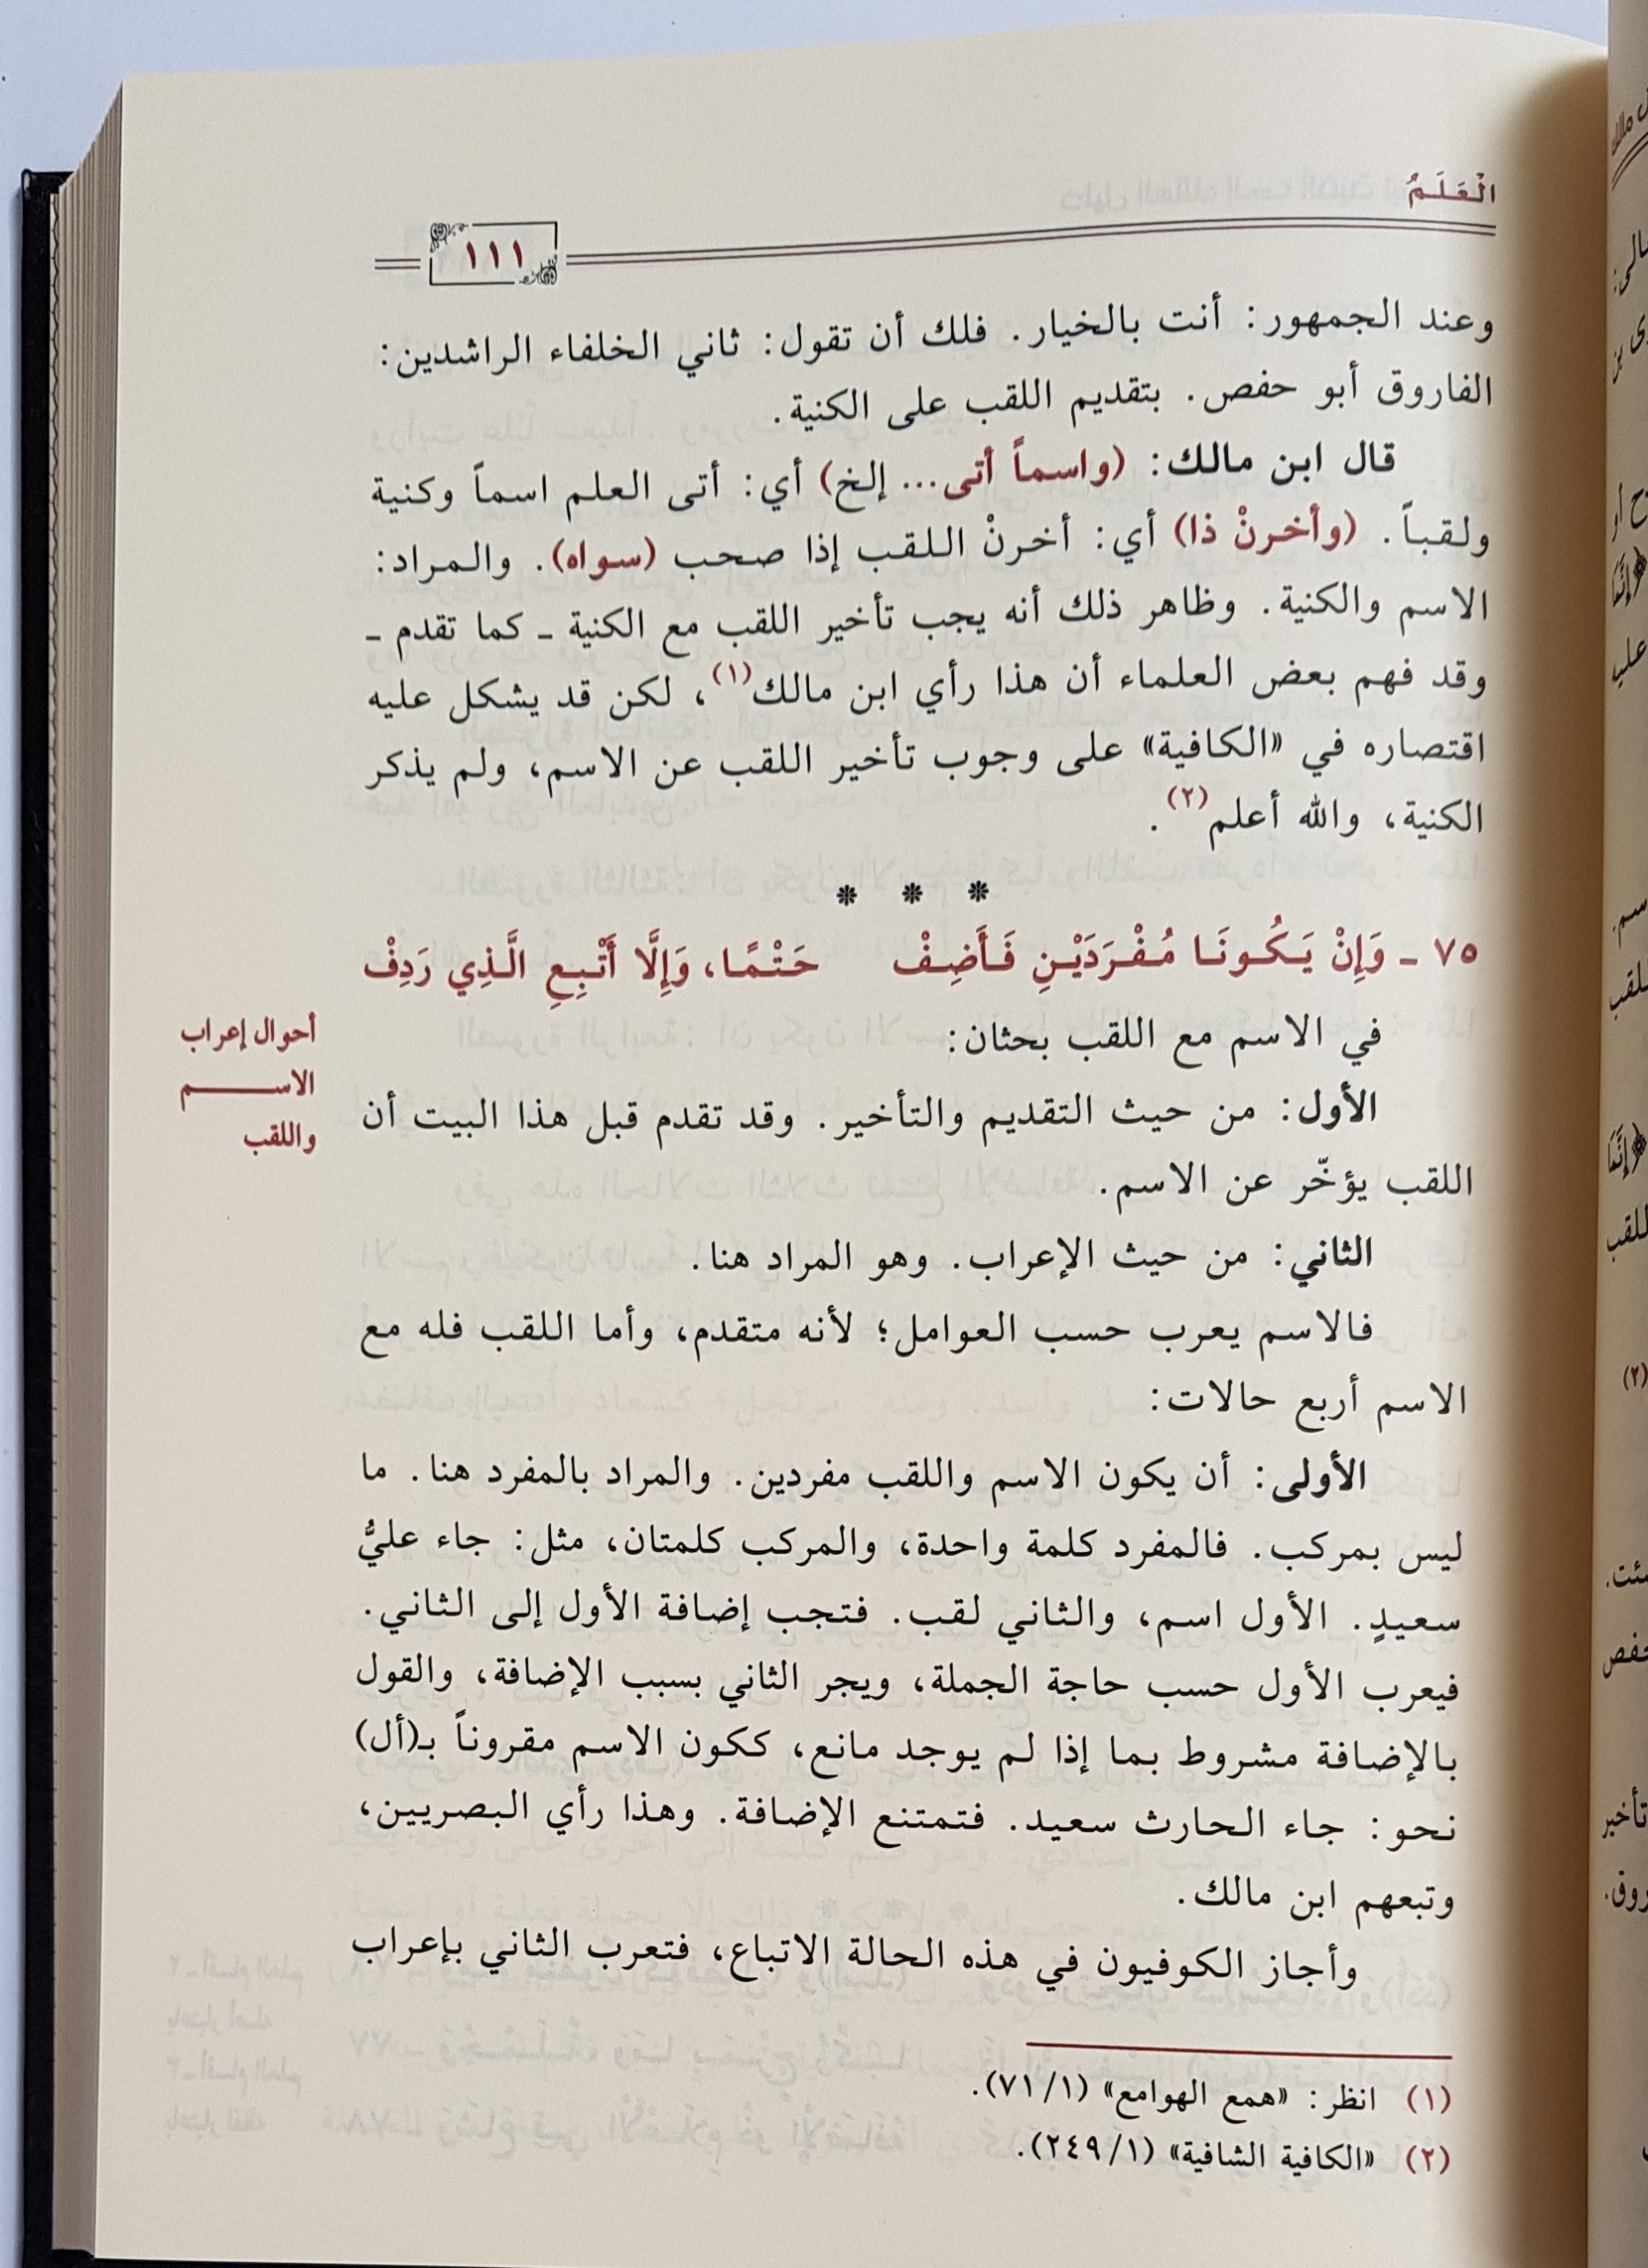 الْعَلَمُ
١١١
وعند الجمهور: أنت بالخيار. فلك أن تقول: ثاني الخلفاء الراشدين:
الفاروق أبو حفص. بتقديم اللقب على الكنية.
قال ابن مالك: (واسماً أتى... إلخ) أي: أتى العلم اسماً وكنية
ولقباً. (وأخرنْ ذا) أي: أخرنْ اللقب إذا صحب (سواه). والمراد:
الاسم والكنية. وظاهر ذلك أنه يجب تأخير اللقب مع الكنية ـ كما تقدم ـ
وقد فهم بعض العلماء أن هذا رأي ابن مالك(١)، لكن قد يشكل عليه
اقتصاره في «الكافية» على وجوب تأخير اللقب عن الاسم، ولم يذكر
الكنية، والله أعلم(٢).
* * *
٧٥ ـ وَإِنْ يَكُونَا مُفْرَدَيْنِ فَأَضِفْ حَتْمًا، وَإِلَّا أَتْبِعِ الَّذِي رَدِفْ
أحوال إعراب
الاسم
واللقب
في الاسم مع اللقب بحثان:
الأول: من حيث التقديم والتأخير. وقد تقدم قبل هذا البيت أن
اللقب يؤخّر عن الاسم.
الثاني: من حيث الإعراب. وهو المراد هنا.
فالاسم يعرب حسب العوامل؛ لأنه متقدم، وأما اللقب فله مع
الاسم أربع حالات:
الأولى: أن يكون الاسم واللقب مفردين. والمراد بالمفرد هنا. ما
ليس بمركب. فالمفرد كلمة واحدة، والمركب كلمتان، مثل: جاء عليُّ
سعيدٍ. الأول اسم، والثاني لقب. فتجب إضافة الأول إلى الثاني.
فيعرب الأول حسب حاجة الجملة، ويجر الثاني بسبب الإضافة، والقول
بالإضافة مشروط بما إذا لم يوجد مانع، ككون الاسم مقروناً بـ(أل)
نحو: جاء الحارث سعيد. فتمتنع الإضافة. وهذا رأي البصريين،
وتبعهم ابن مالك.
وأجاز الكوفيون في هذه الحالة الاتباع، فتعرب الثاني بإعراب
(١) انظر: «همع الهوامع» (٧١/١).
(٢) «الكافية الشافية» (٢٤٩/١).